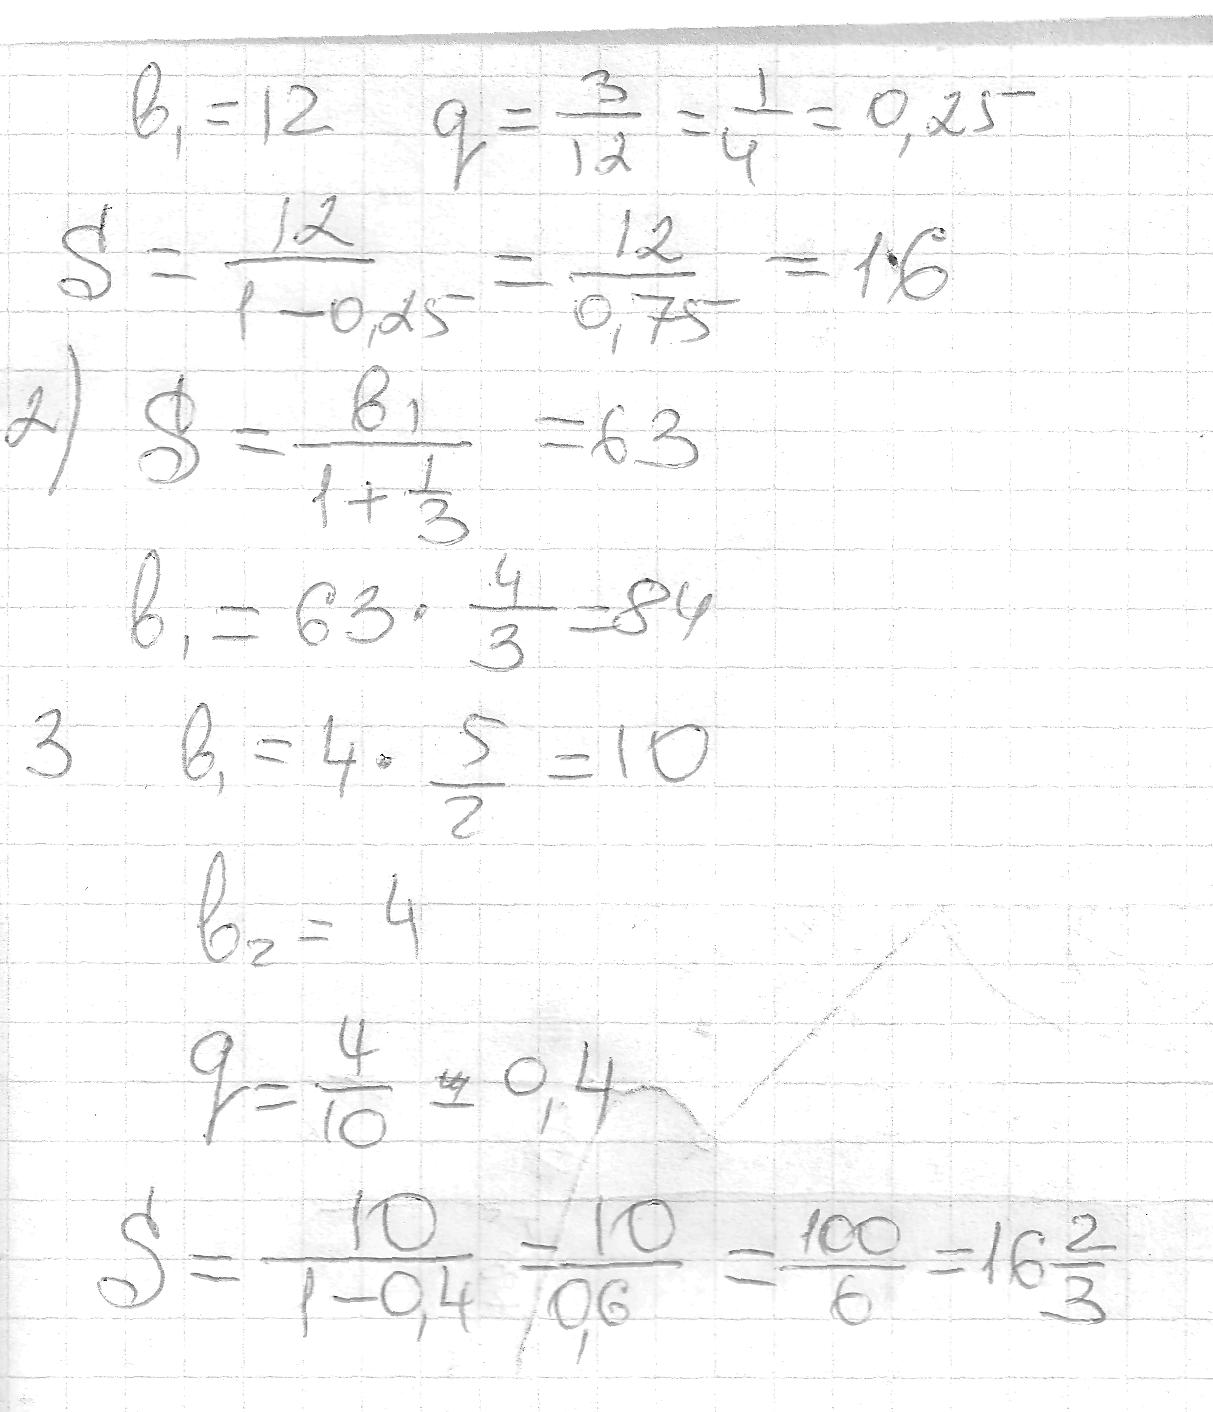 b₁ = 12 q = 3/12 = 1/4 = 0,25
S = 12/(1-0,25) = 12/0,75 = 16
2) S = b₁/(1+1/3) = 63
b₁ = 63 · 4/3 = 84
3 b₁ = 4 · 5/2 = 10
b₂ = 4
q = 4/10 = 0,4
S = 10/(1-0,4) = 10/0,6 = 100/6 = 16 2/3